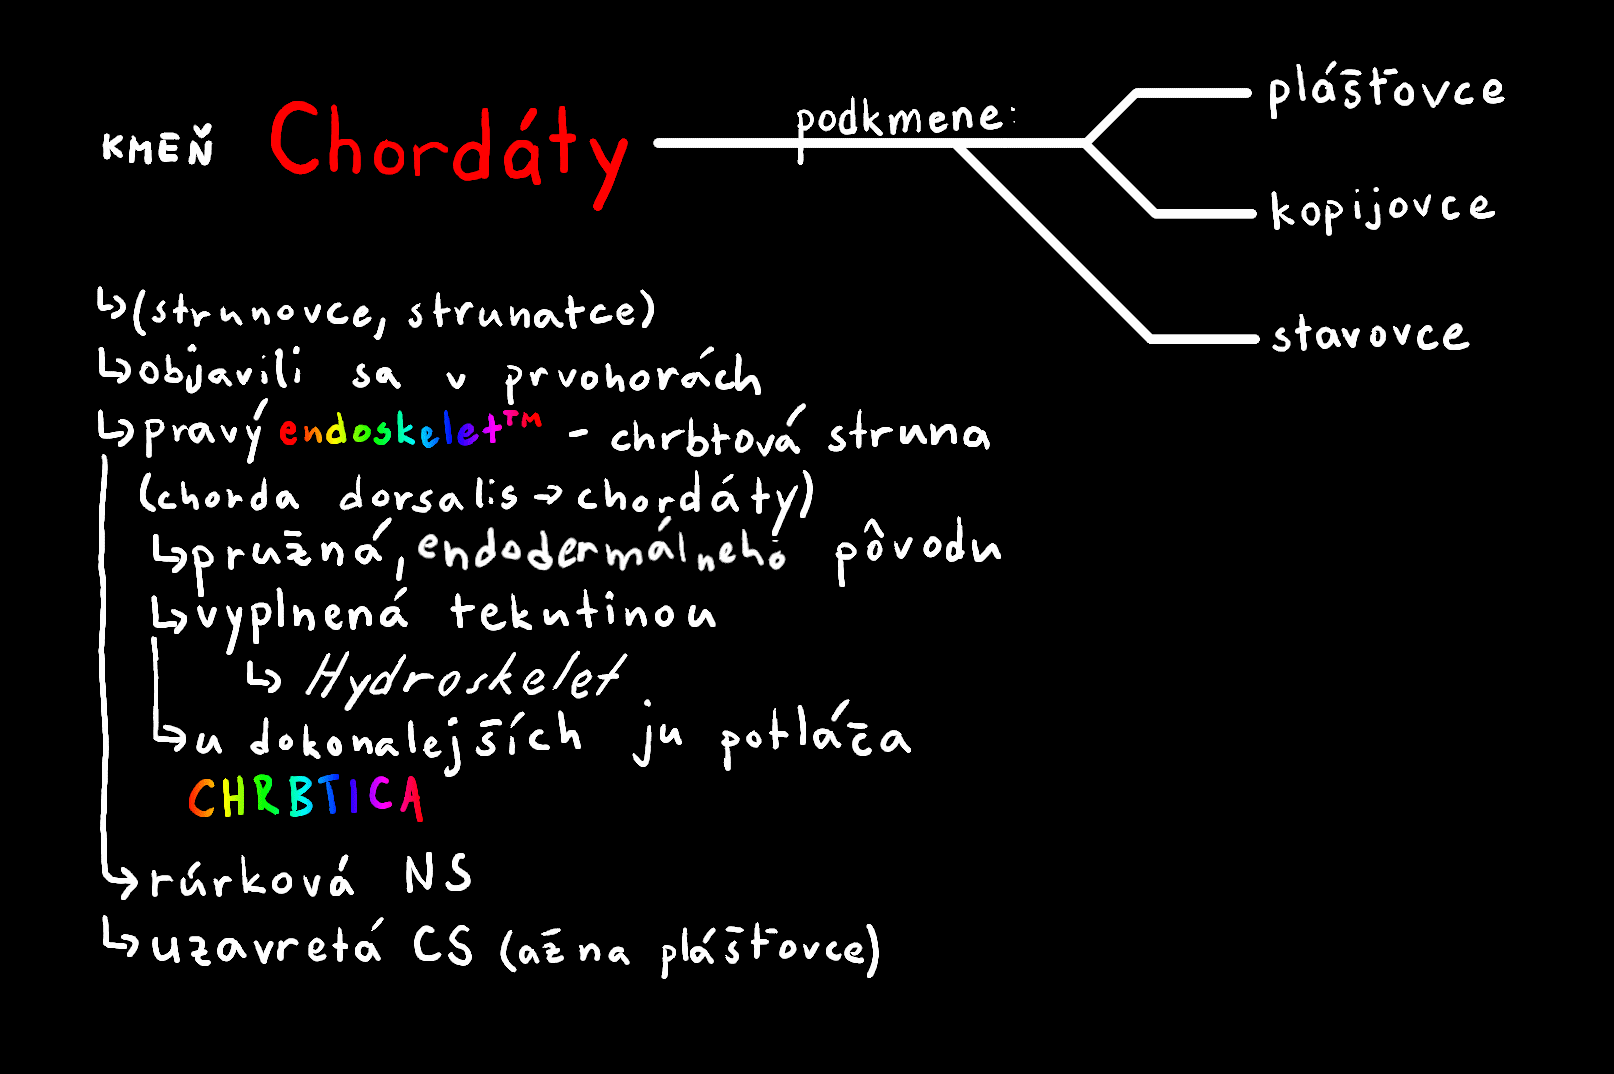 KMEŇ Chordáty
podkmene:
plášťovce
kopijovce
stavovce
↳(strunovce, strunatce)
↳objavili sa v prvohorách
↳pravý endoskelet™ - chrbtová struna
(chorda dorsalis → chordáty)
↳pružná, endodermálneho pôvodu
↳vyplnená tekutinou
↳ Hydroskelet
↳u dokonalejších ju potláča
CHRBTICA
↳rúrková NS
↳uzavretá CS (až na plášťovce)